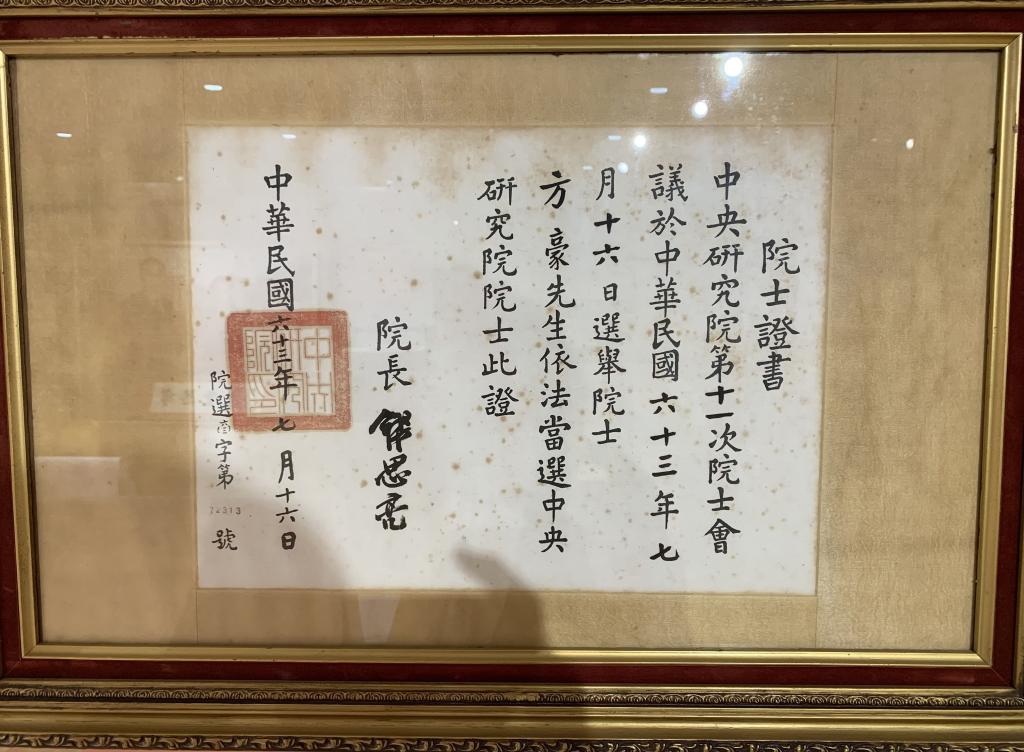 院士證書
中央研究院第十一次院士會
議於中華民國六十三年七
月十六日選舉院士
方豪先生依法當選中央
研究院院士此證
院長 錢思亮
中華民國六十三年七月十六日
院選 字第 號